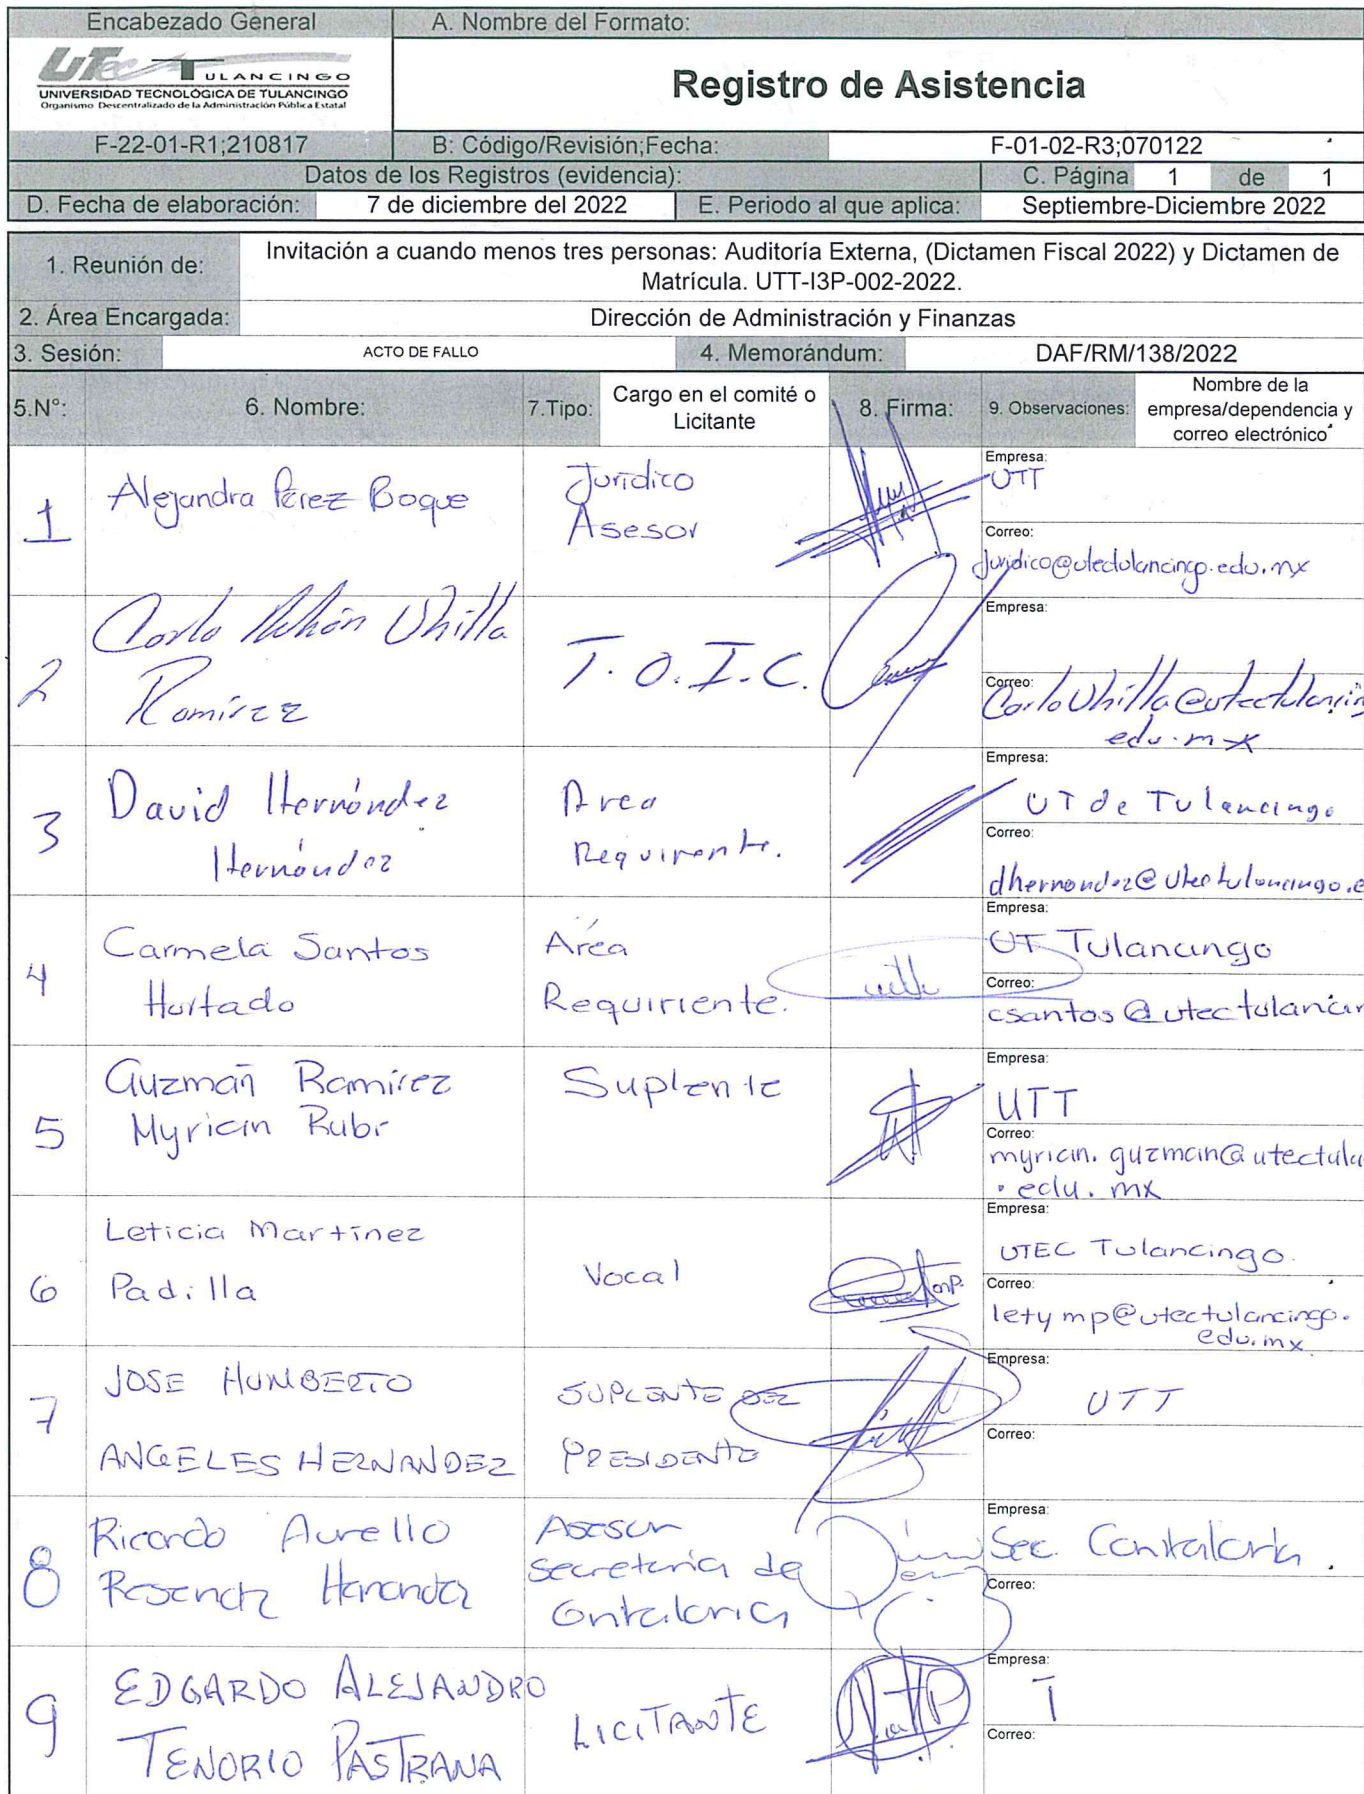 Encabezado General
A. Nombre del Formato:
UTec TULANCINGO
UNIVERSIDAD TECNOLÓGICA DE TULANCINGO
Organismo Descentralizado de la Administración Pública Estatal
Registro de Asistencia
F-22-01-R1;210817
B: Código/Revisión;Fecha:
F-01-02-R3;070122
Datos de los Registros (evidencia):
C. Página 1 de 1
D. Fecha de elaboración:
7 de diciembre del 2022
E. Periodo al que aplica:
Septiembre-Diciembre 2022
1. Reunión de:
Invitación a cuando menos tres personas: Auditoría Externa, (Dictamen Fiscal 2022) y Dictamen de
Matrícula. UTT-I3P-002-2022.
2. Área Encargada:
Dirección de Administración y Finanzas
3. Sesión:
ACTO DE FALLO
4. Memorándum:
DAF/RM/138/2022
5.N°:
6. Nombre:
7.Tipo:
Cargo en el comité o
Licitante
8. Firma:
9. Observaciones:
Nombre de la
empresa/dependencia y
correo electrónico
1
Alejandra Pérez Boque
Jurídico
Asesor
Empresa:
UTT
Correo:
Juridico@utectulancingo.edu.mx
2
Carlo Uhilla
Ramírez
T.O.I.C.
Empresa:
Correo:
CarloUhilla@utectulancin
edu.mx
3
David Hernández
Hernández
Area
Requirente.
Empresa:
UT de Tulancingo
Correo:
dhernandez@utectulancingo.e
4
Carmela Santos
Hurtado
Área
Requiriente.
Empresa:
UT Tulancingo
Correo:
csantos@utectulancin
5
Guzmán Ramírez
Myrian Rubi
Suplente
Empresa:
UTT
Correo:
myrian.guzman@utectula
.edu.mx
6
Leticia Martínez
Padilla
Vocal
Empresa:
UTEC Tulancingo.
Correo:
letymp@utectulancingo.
edu.mx
7
JOSE HUMBERTO
ANGELES HERNANDEZ
SUPLENTE DEL
PRESIDENTE
Empresa:
UTT
Correo:
8
Ricardo Aurelio
Resendiz Hernandez
Asesor
Secretaría de
Contraloria
Empresa:
Sec. Contraloria.
Correo:
9
EDGARDO ALEJANDRO
TENORIO PASTRANA
LICITANTE
Empresa:
T
Correo: